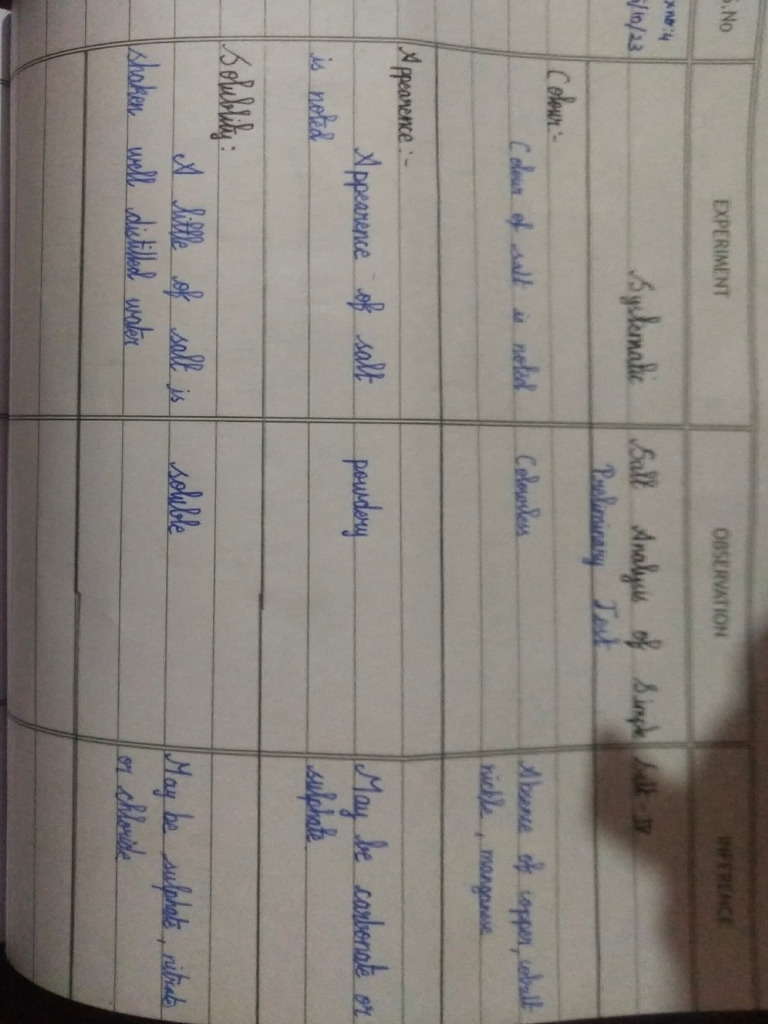 S.No EXPERIMENT OBSERVATION INFERENCE
Ex no: 4
/10/23
Systematic Salt Analysis of Simple Salt - IV
Preliminary Test
Colour:-
Colour of salt is noted
Colourless
Absence of copper, cobalt
nickle, manganese
Appearence:-
Appearence of salt
is noted
powdery
May be carbonate or
sulphate
Solublity:
A little of salt is
shaken well distilled water
soluble
May be sulphate, nitrate
or chloride